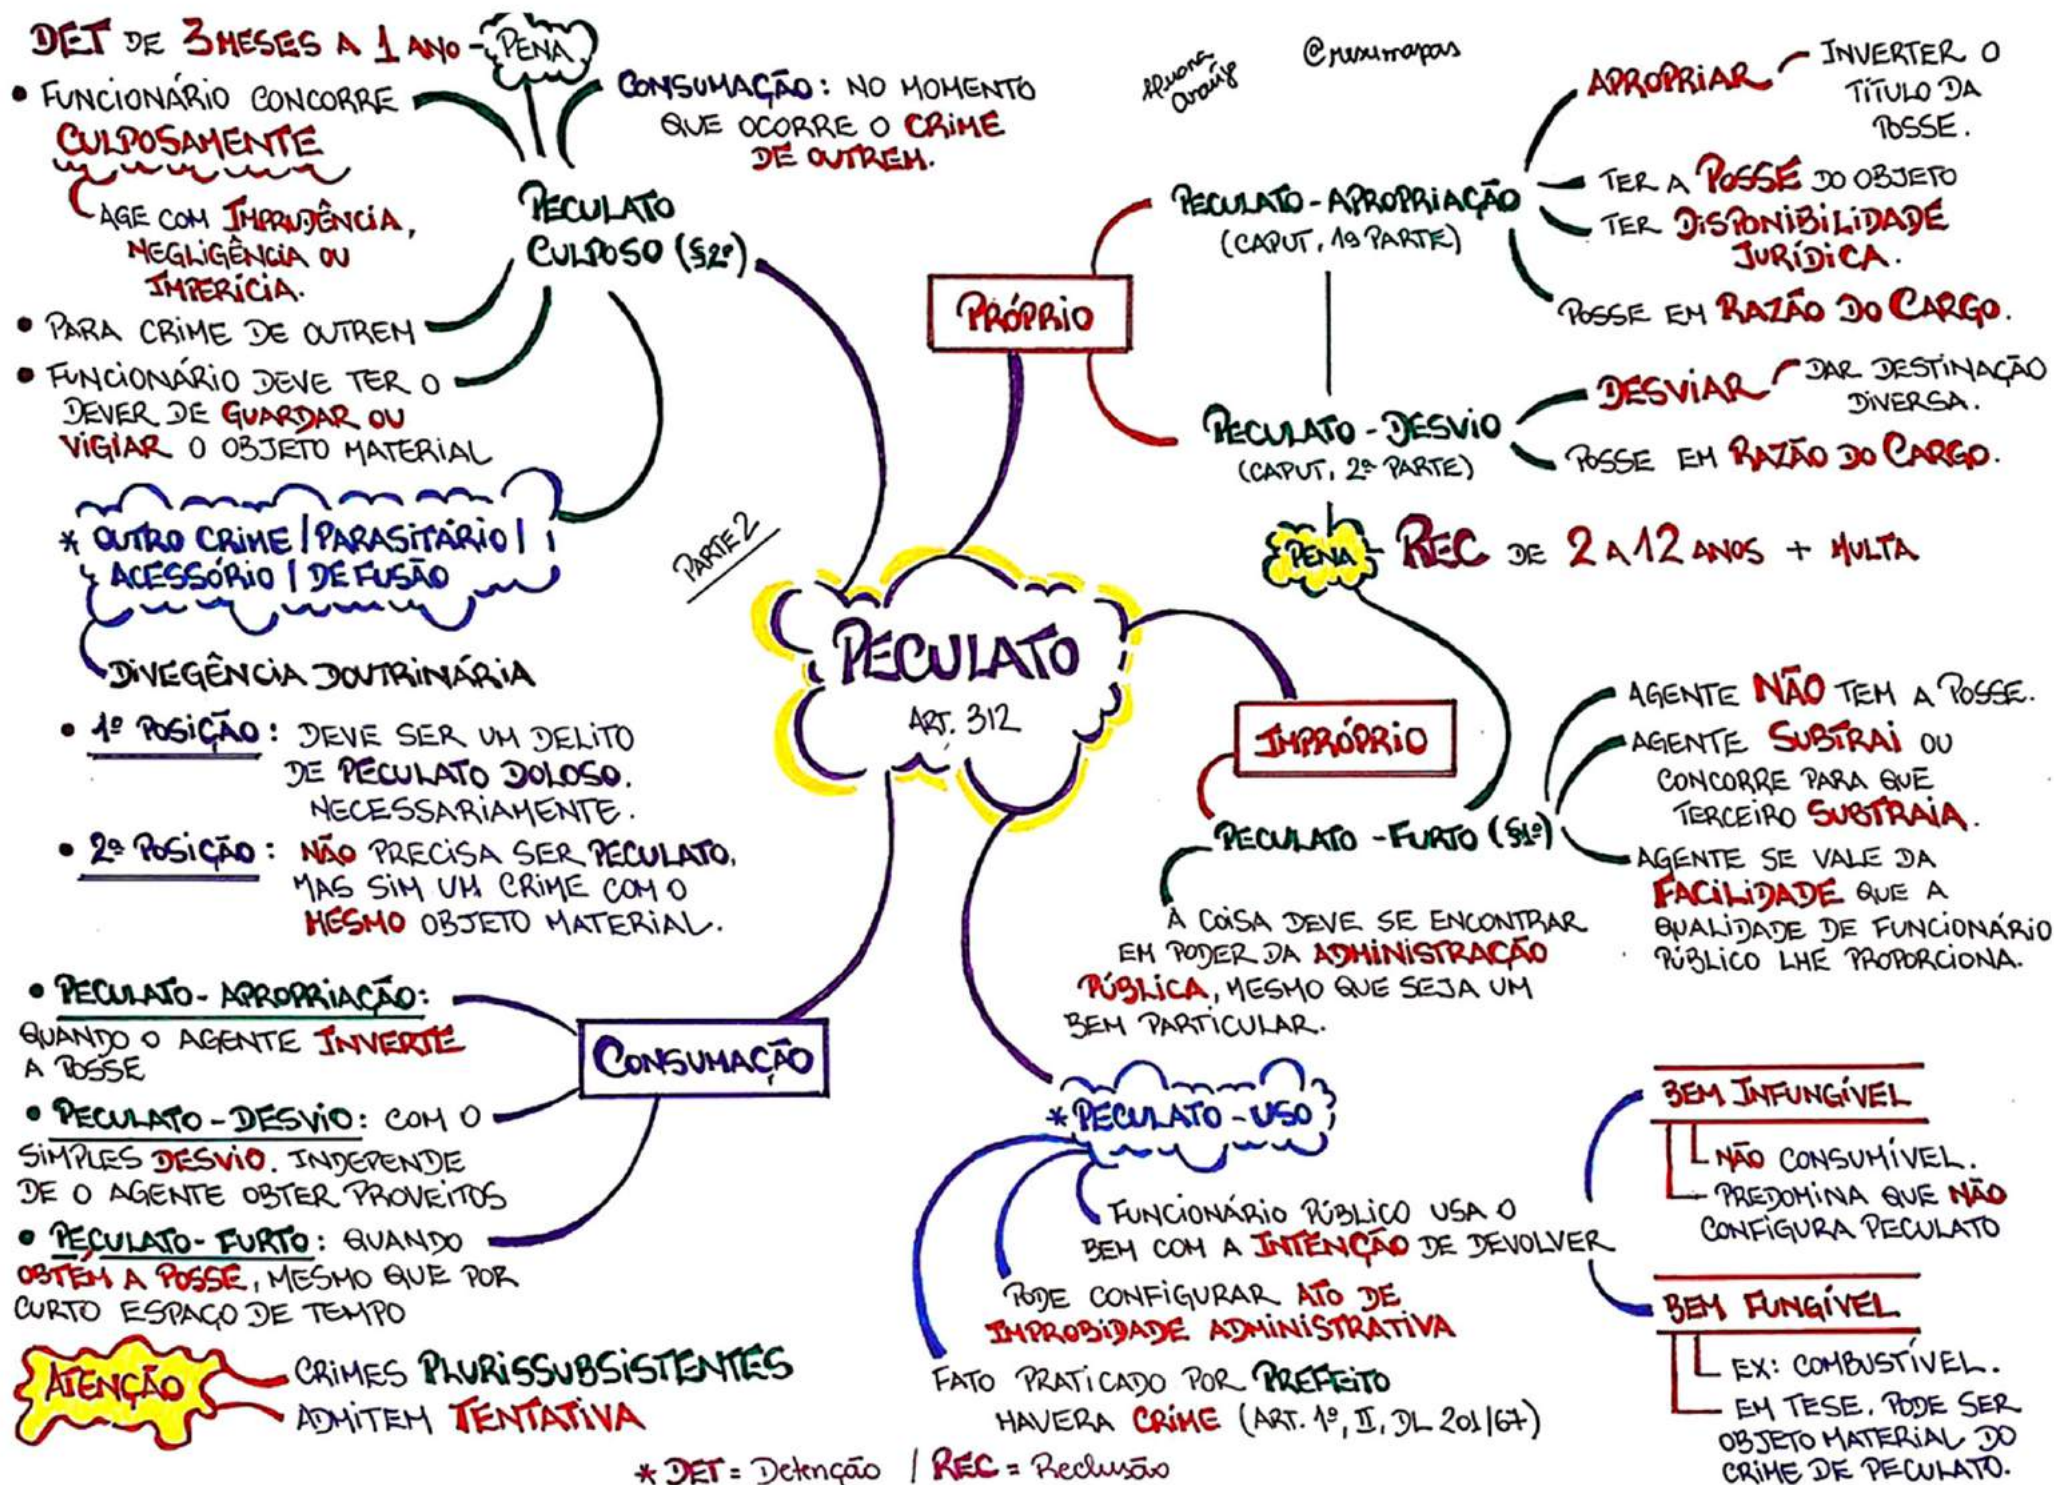 DET DE 3 MESES A 1 ANO - PENA
• FUNCIONÁRIO CONCORRE
CULPOSAMENTE
AGE COM IMPRUDÊNCIA,
NEGLIGÊNCIA OU
IMPERÍCIA.
• PARA CRIME DE OUTREM
• FUNCIONÁRIO DEVE TER O
DEVER DE GUARDAR OU
VIGIAR O OBJETO MATERIAL
CONSUMAÇÃO: NO MOMENTO
QUE OCORRE O CRIME
DE OUTREM.
PECULATO
CULPOSO (§2º)
* OUTRO CRIME | PARASITÁRIO |
ACESSÓRIO | DE FUSÃO
DIVEGÊNCIA DOUTRINÁRIA
• 1º POSIÇÃO: DEVE SER UM DELITO
DE PECULATO DOLOSO.
NECESSARIAMENTE.
• 2ª POSIÇÃO: NÃO PRECISA SER PECULATO,
MAS SIM UM CRIME COM O
MESMO OBJETO MATERIAL.
araújo
@resumapas
PRÓPRIO
PECULATO-APROPRIAÇÃO
(CAPUT, 1ª PARTE)
APROPRIAR - INVERTER O
TÍTULO DA
POSSE.
TER A POSSE DO OBJETO
TER DISPONIBILIDADE
JURÍDICA.
POSSE EM RAZÃO DO CARGO.
PECULATO-DESVIO
(CAPUT, 2ª PARTE)
DESVIAR - DAR DESTINAÇÃO
DIVERSA.
POSSE EM RAZÃO DO CARGO.
PENA - REC DE 2 A 12 ANOS + MULTA
PARTE 2
PECULATO
ART. 312
IMPRÓPRIO
PECULATO-FURTO (§1º)
AGENTE NÃO TEM A POSSE.
AGENTE SUBTRAI OU
CONCORRE PARA QUE
TERCEIRO SUBTRAIA.
AGENTE SE VALE DA
FACILIDADE QUE A
QUALIDADE DE FUNCIONÁRIO
PÚBLICO LHE PROPORCIONA.
A COISA DEVE SE ENCONTRAR
EM PODER DA ADMINISTRAÇÃO
PÚBLICA, MESMO QUE SEJA UM
BEM PARTICULAR.
CONSUMAÇÃO
• PECULATO-APROPRIAÇÃO:
QUANDO O AGENTE INVERTE
A POSSE
• PECULATO-DESVIO: COM O
SIMPLES DESVIO. INDEPENDE
DE O AGENTE OBTER PROVEITOS
• PECULATO-FURTO: QUANDO
OBTÉM A POSSE, MESMO QUE POR
CURTO ESPAÇO DE TEMPO
ATENÇÃO
CRIMES PLURISSUBSISTENTES
ADMITEM TENTATIVA
* PECULATO-USO
FUNCIONÁRIO PÚBLICO USA O
BEM COM A INTENÇÃO DE DEVOLVER
PODE CONFIGURAR ATO DE
IMPROBIDADE ADMINISTRATIVA
FATO PRATICADO POR PREFEITO
HAVERA CRIME (ART. 1º, II, DL 201/67)
BEM INFUNGÍVEL
NÃO CONSUMÍVEL.
PREDOMINA QUE NÃO
CONFIGURA PECULATO
BEM FUNGÍVEL
EX: COMBUSTÍVEL.
EM TESE. PODE SER
OBJETO MATERIAL DO
CRIME DE PECULATO.
* DET = Detenção / REC = Reclusão